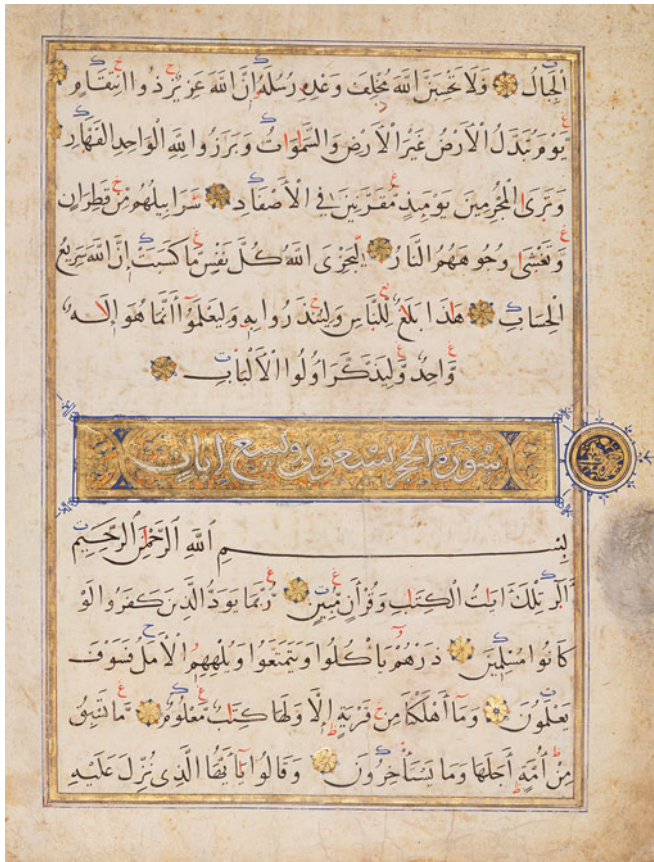 الْجِبَالُ فَلَا تَحْسَبَنَّ اللَّهَ مُخْلِفَ وَعْدِهِ رُسُلَهُ إِنَّ اللَّهَ عَزِيزٌ ذُوا انْتِقَامٍ
يَوْمَ تُبَدَّلُ الْأَرْضُ غَيْرَ الْأَرْضِ وَالسَّمَاوَاتُ وَبَرَزُوا لِلَّهِ الْوَاحِدِ الْقَهَّارِ
وَتَرَى الْمُجْرِمِينَ يَوْمَئِذٍ مُّقَرَّنِينَ فِي الْأَصْفَادِ سَرَابِيلُهُم مِّن قَطِرَانٍ
وَّتَغْشَى وُجُوهَهُمُ النَّارُ لِيَجْزِيَ اللَّهُ كُلَّ نَفْسٍ مَّا كَسَبَتْ إِنَّ اللَّهَ سَرِيعُ
الْحِسَابِ هَذَا بَلَاغٌ لِّلنَّاسِ وَلِيُنذَرُوا بِهِ وَلِيَعْلَمُوا أَنَّمَا هُوَ إِلَهٌ
وَّاحِدٌ وَّلِيَذَّكَّرَ أُولُوا الْأَلْبَابِ
سورة الحجر تسعون وتسع ايات
بِسْمِ اللَّهِ الرَّحْمَنِ الرَّحِيمِ
الٓرٰ تِلْكَ اٰيَاتُ الْكِتَابِ وَقُرْآنٍ مُّبِينٍ رُّبَمَا يَوَدُّ الَّذِينَ كَفَرُوا لَوْ
كَانُوا مُسْلِمِينَ ذَرْهُمْ يَأْكُلُوا وَيَتَمَتَّعُوا وَيُلْهِهِمُ الْأَمَلُ فَسَوْفَ
يَعْلَمُونَ وَمَا أَهْلَكْنَا مِن قَرْيَةٍ إِلَّا وَلَهَا كِتَابٌ مَّعْلُومٌ مَّا تَسْبِقُ
مِنْ أُمَّةٍ أَجَلَهَا وَمَا يَسْتَأْخِرُونَ وَقَالُوا يَا أَيُّهَا الَّذِي نُزِّلَ عَلَيْهِ